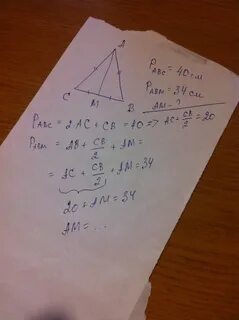 A
C
M
B
P_ABC = 40 см
P_ABM = 34 см
AM = ?
P_ABC = 2AC + CB = 40 => AC + CB/2 = 20
P_ABM = AB + CB/2 + AM =
= AC + CB/2 + AM = 34
20 + AM = 34
AM = ...